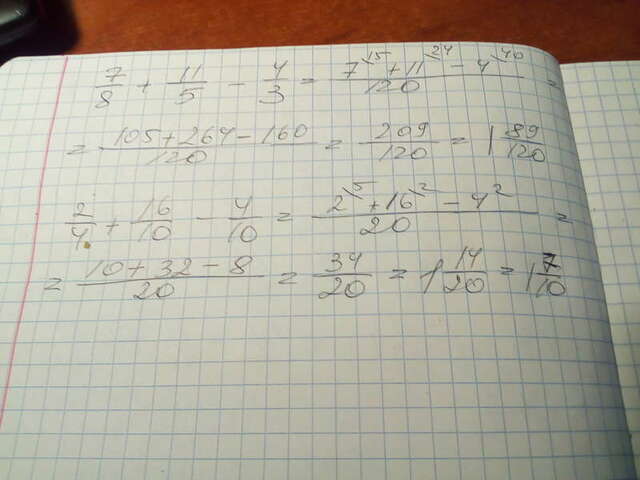 7/8 + 11/5 - 4/3 = (7^15 + 11^24 - 4^40)/120 =
= (105 + 264 - 160)/120 = 209/120 = 1 89/120
2/4 + 16/10 - 4/10 = (2^5 + 16^2 - 4^2)/20 =
= (10 + 32 - 8)/20 = 34/20 = 1 14/20 = 1 7/10